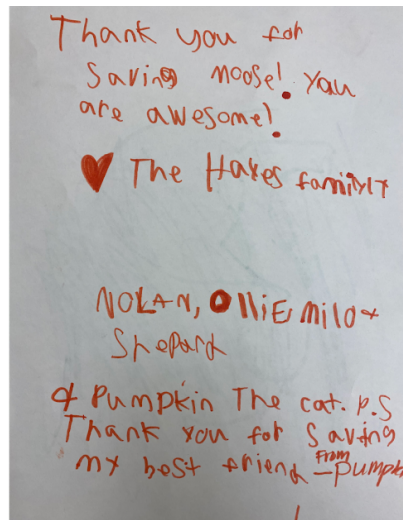 Thank you for
Saving Moose! You
are awesome!
The Hakes family
NOLAN, OlliE, milo +
Shepard
& Pumpkin The cat. P.S
Thank you for Saving
my best friend - From Pumpk